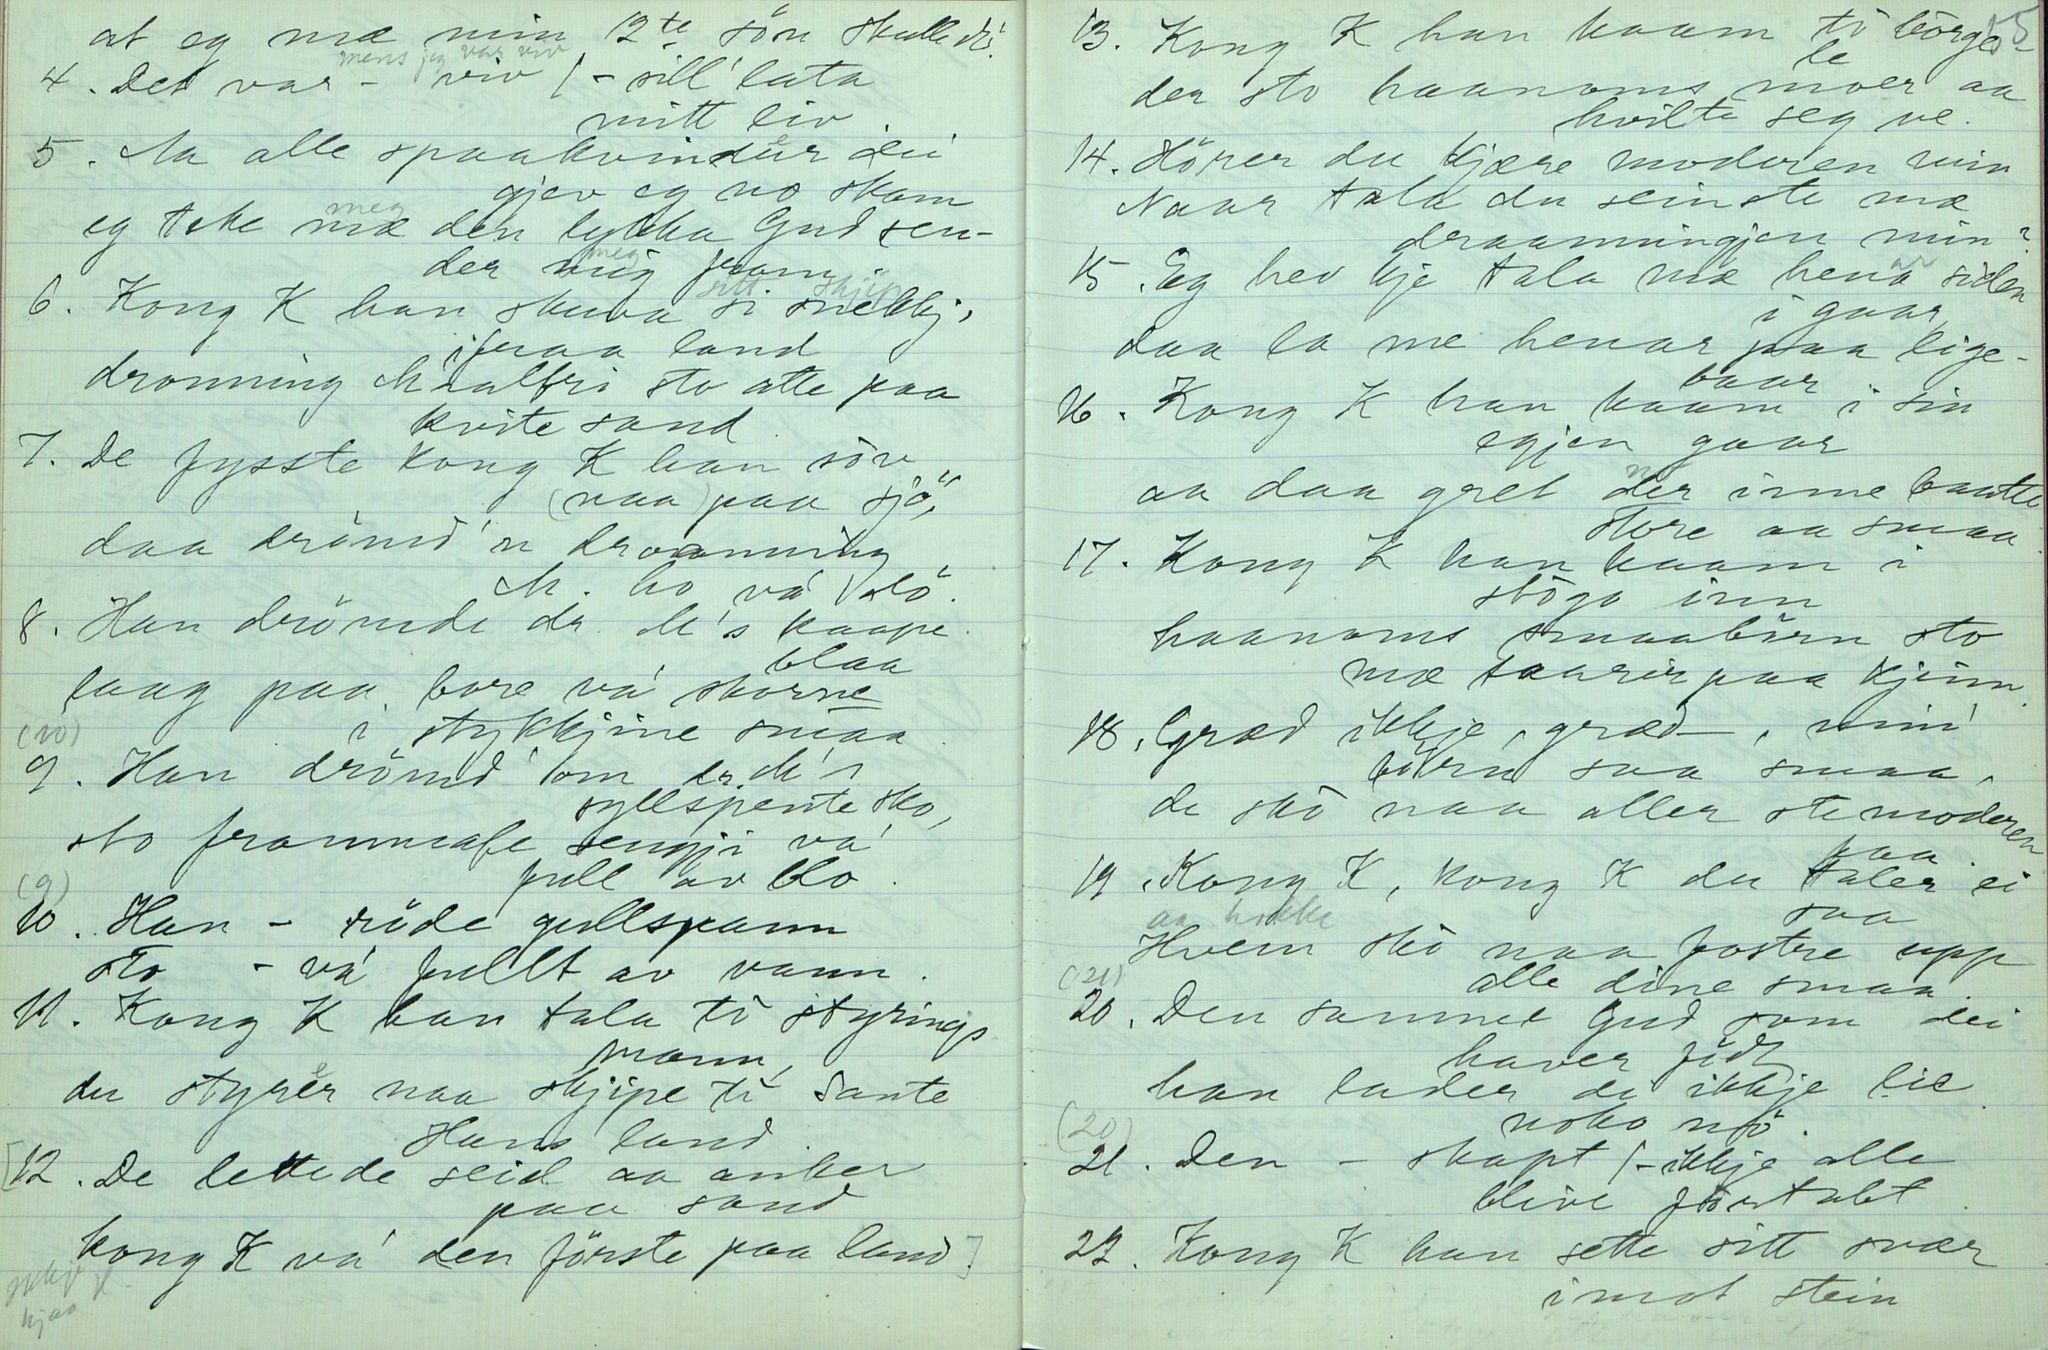 at eg mæ min 12te sön skulle dö.
mens jeg var viv
4. Det var - viv / - sill' lata
mitt liv.
5. Aa alle spaakvinder dei
gjev eg no skam
meg
eg take mæ den lykka Gud sen-
der mig fram.
meg
sitt skjip
6. Kong K han skuva si snekkj.
ifraa land
dronning Maalfri sto atte paa
kvite sand.
7. De fysste kong K han söv
(naa) paa sjö,
daa drömd'n droanning
M. ho vá dö.
8. Han drömde dr. M's kaape
blaa
laag paa bore vá skorne
i stykkjine smaa.
(10)
9. Han drömd' om dr. M's
syllspente sko,
sto frammafe sengji vá
full av blo.
(9)
10. Han - röde gullspann
sto - vá fullt av vann.
11. Kong K han tala ti styrings
mann,
du styrer naa skjipe ti Sante
Hans land.
[12. De lettede seid aa anker
paa sand
kong K vá den förste paa land]
ikkje
hjaa K.
15
13. Kong K han kaam ti börge-
le
der sto haanoms moer aa
hvilte seg ve.
14. Hörer du kjære moderen min
Naar tala du seinste mæ
draanningjen min?
15. Eg hev kje tala mæ hena siden
ar
i gaar
daa la me henar paa lige-
baar
16. Kong K han kaam i sin
egjen gaar
aa daa gret der inne baatte
store aa smaa.
17. Kong K han kaam i
stögo inn
haanoms smaabörn sto
mæ taarir paa kjinn.
18. Græd ikkje, græd -, min'
börn saa smaa,
de skö naa aller stemoderen
faa.
19. Kong K, kong K du taler ei
saa
aa hokke
Hvem skö naa fostre upp
alle dine smaa.
(21)
20. Den sammel Gud som dei
haver föd
han lader de ikkje lie
noko nö.
(20)
21. Den - skapt / - ikkje alle
blive förtabt.
22. Kong K han sette sitt svær
imot stein